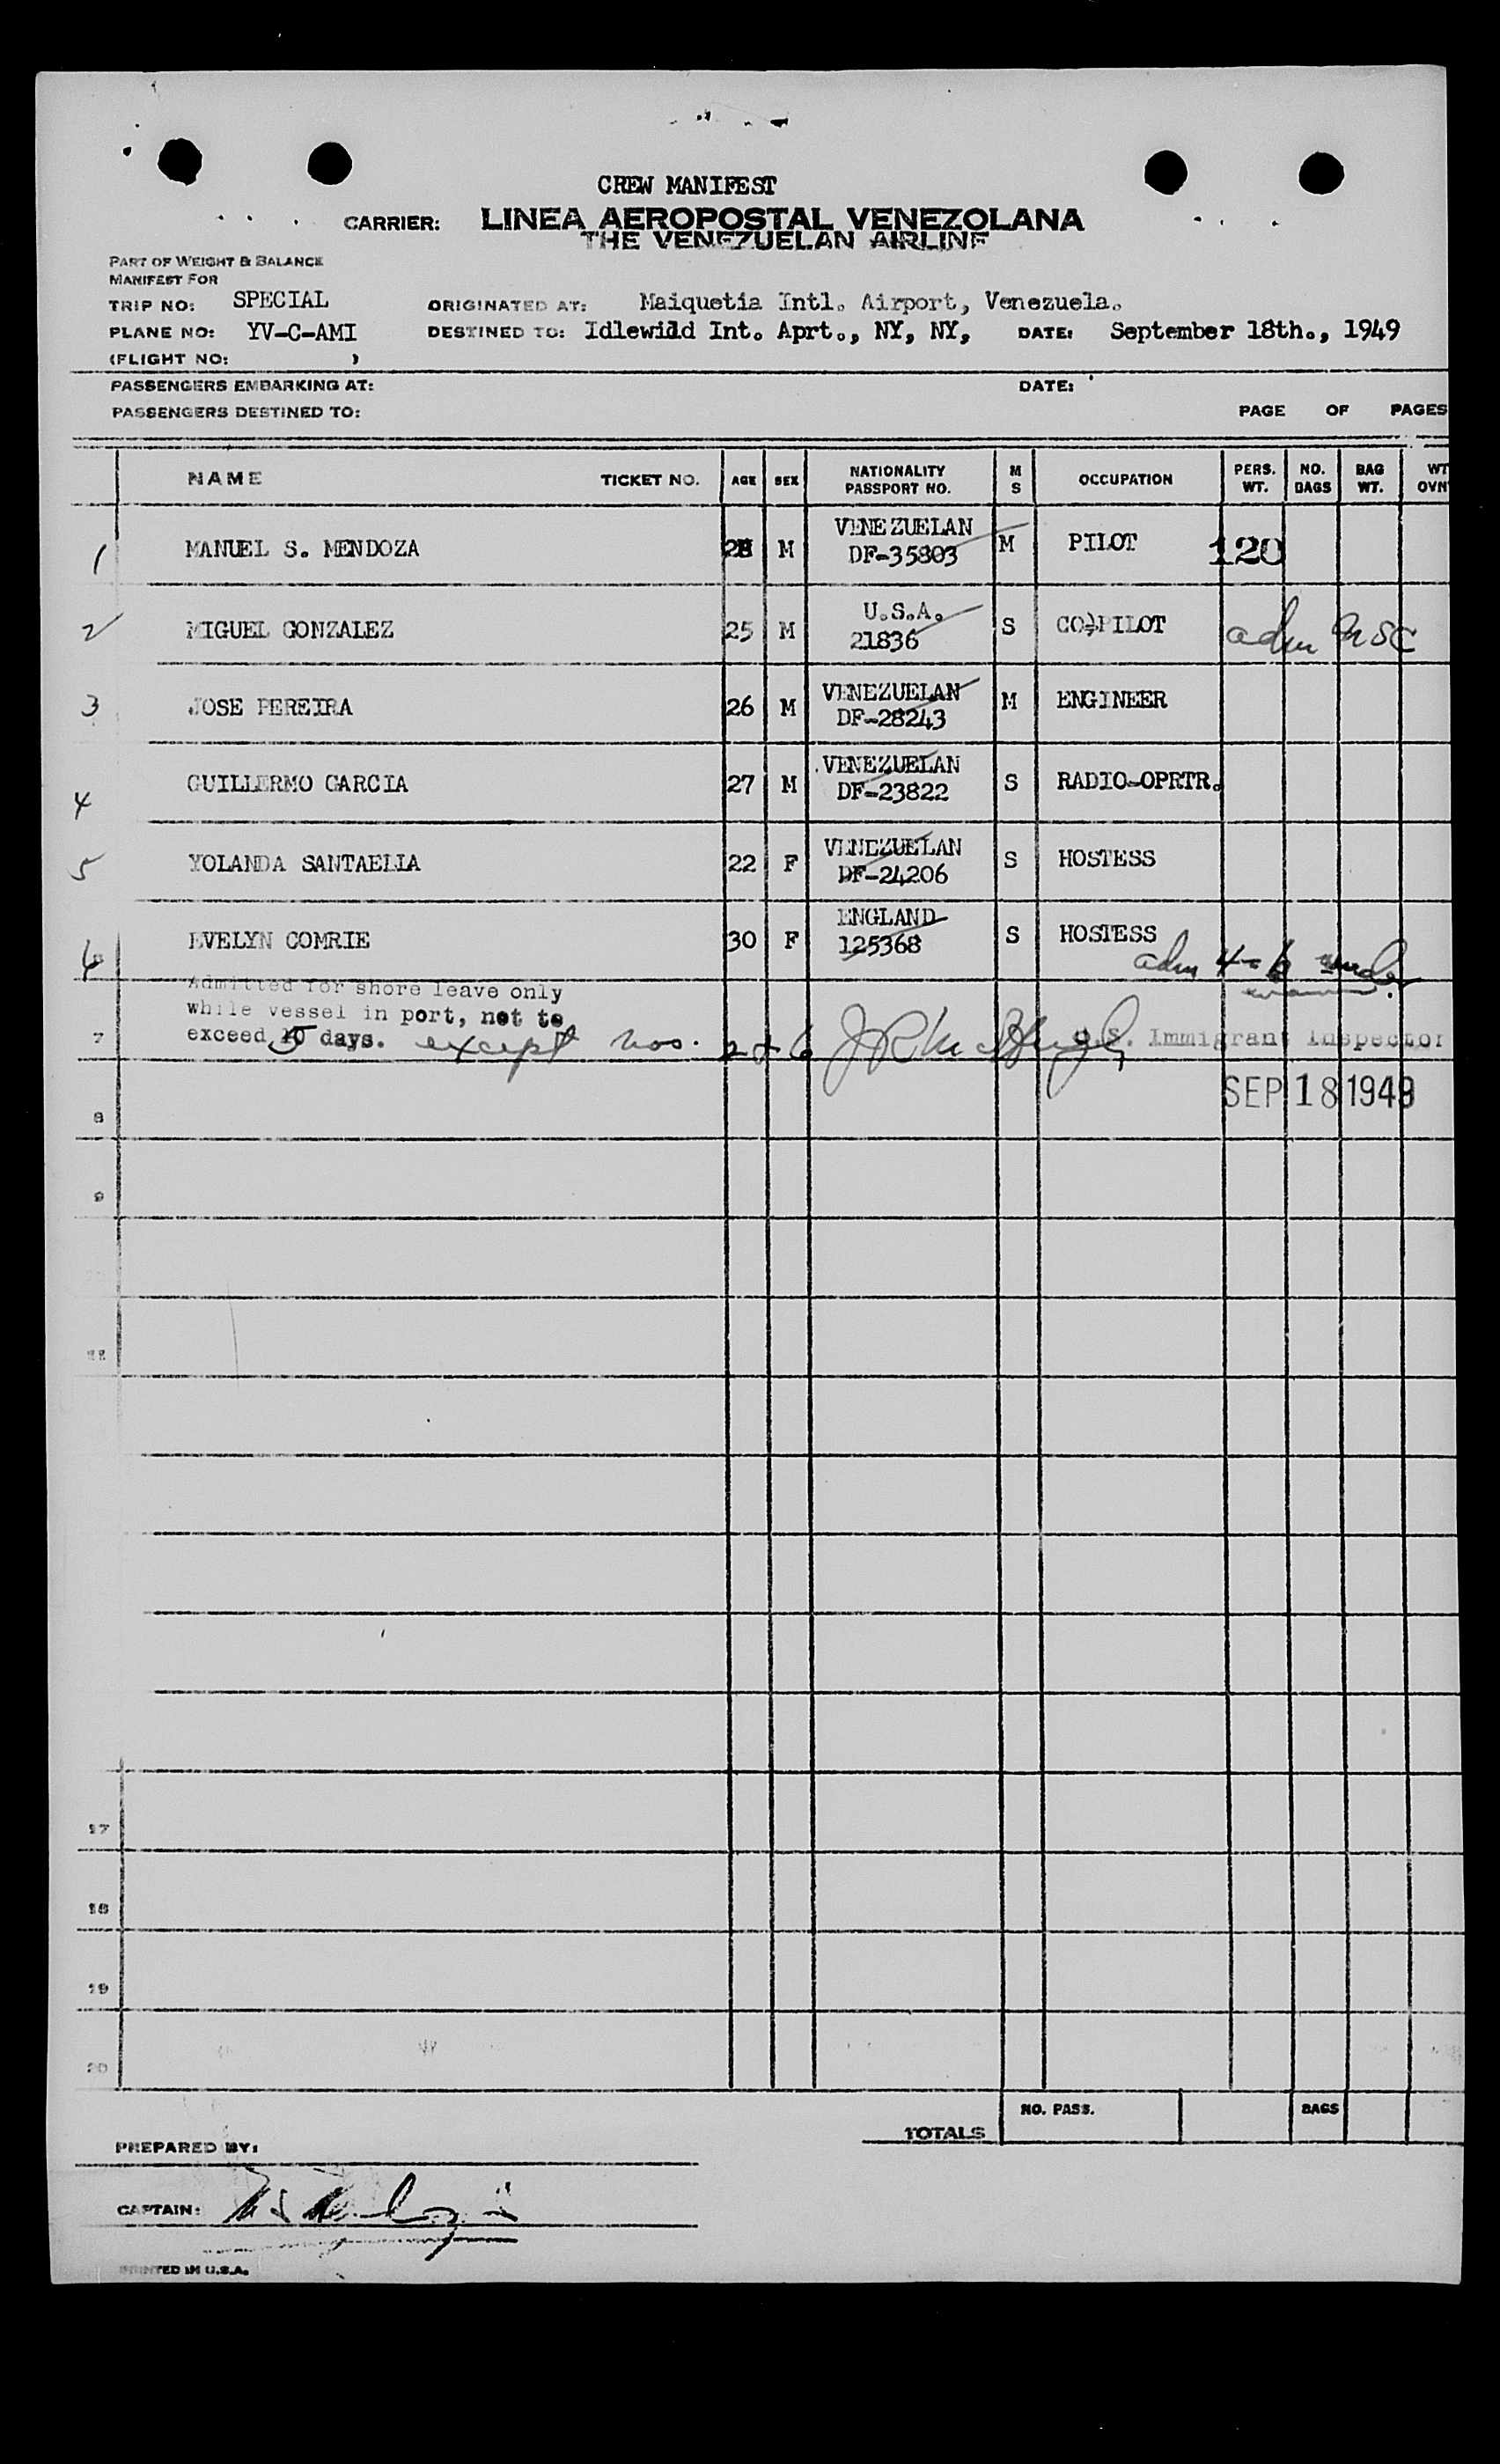 CREW MANIFEST
CARRIER: LINEA AEROPOSTAL VENEZOLANA
THE VENEZUELAN AIRLINE
PART OF WEIGHT & BALANCE
MANIFEST FOR
TRIP NO: SPECIAL ORIGINATED AT: Maiquetia Intl. Airport, Venezuela.
PLANE NO: YV-C-AMI DESTINED TO: Idlewild Int. Aprt., NY, NY, DATE: September 18th., 1949
(FLIGHT NO: )
PASSENGERS EMBARKING AT: DATE:
PASSENGERS DESTINED TO: PAGE OF PAGES
NAME TICKET NO. AGE SEX NATIONALITY PASSPORT NO. M S OCCUPATION PERS. WT. NO. BAGS BAG WT. WT OVN
1 MANUEL S. MENDOZA 28 M VENEZUELAN DF-35803 M PILOT 120
2 MIGUEL GONZALEZ 25 M U.S.A. 21836 S CO-PILOT adm USC
3 JOSE PEREIRA 26 M VENEZUELAN DF-28243 M ENGINEER
4 GUILLERMO GARCIA 27 M VENEZUELAN DF-23822 S RADIO-OPRTR.
5 YOLANDA SANTAELLA 22 F VENEZUELAN DF-24206 S HOSTESS
6 EVELYN COMRIE 30 F ENGLAND 125368 S HOSTESS
adm 4-6 under
Admitted for shore leave only
while vessel in port, not to
exceed 5 days. except nos. 2 & 6 U. S. Immigrant Inspector
7
SEP 18 1949
8
9
11
17
18
19
20
NO. PASS. BAGS
TOTALS
PREPARED BY:
CAPTAIN:
PRINTED IN U.S.A.